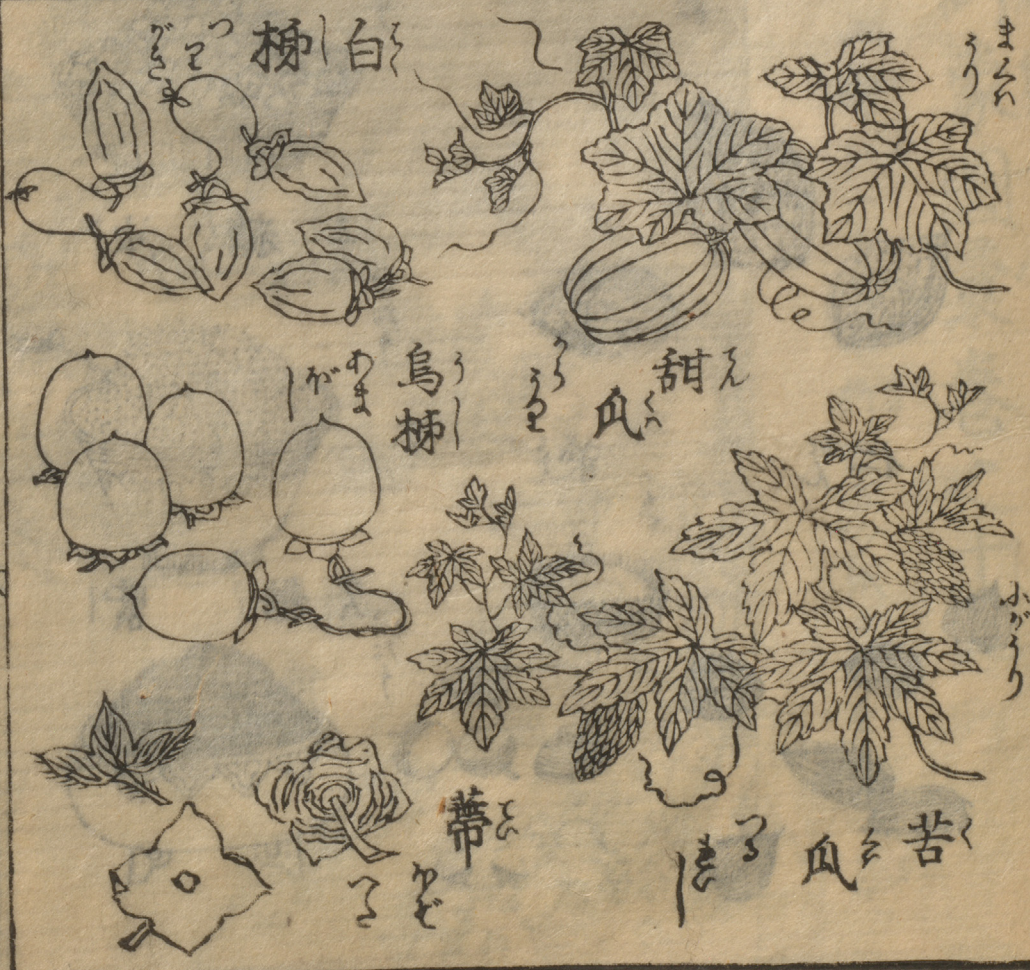 まくは
うり
甜瓜
てん
くハ
からうり
白柹
はくし
つり
がき
烏柹
うし
あま
ぼし
にがうり
苦瓜
く
くハ
つる
蔕
てい
ほぞ
へた